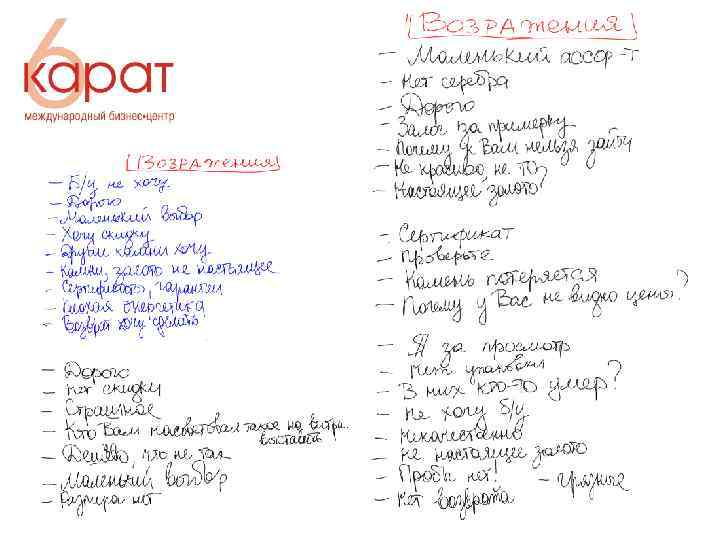 6 карат
международный бизнес-центр
[Возражения]
– Б/у не хочу
– Дорого
– Маленький выбор
– Хочу скидку
– Другие камни хочу
– Камни, золото не настоящее
– Сертификаты, гарантии
– Плохая энергетика
– Возврат хочу сделать
– Дорого
– Нет скидки
– Страшное
– Кто Вам насоветовал такое на витри. выставить
– Дешево, что не так
– Маленький выбор
– Размера нет
[Возражения]
– Маленький ассор-т
– Нет серебра
– Дорого
– Залог за примерку
– Почему к Вам нельзя зайти
– Не красиво, не то
– Настоящее золото?
– Сертификат
– Проверьте
– Камень потеряется
– Почему у Вас не видно цены?
– Я за просмотр
– Нет упаковки
– В них кто-то умер?
– Не хочу б/у
– Некачественно
– Не настоящее золото
– Пробы нет! – Грязные
– Нет возврата